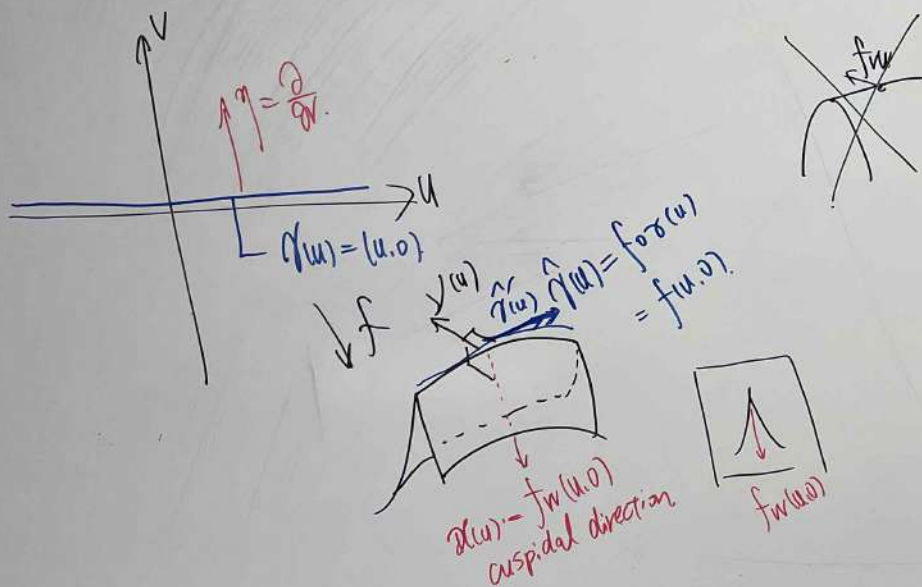 V
η = ∂/∂v.
u
γ(u) = (u.0)
↓ f
ν(u)
γ̂'(u)
γ̂(u) = f∘γ(u)
= f(u,0).
f_vv(u.0)
cuspidal direction
f_vv(u.0)